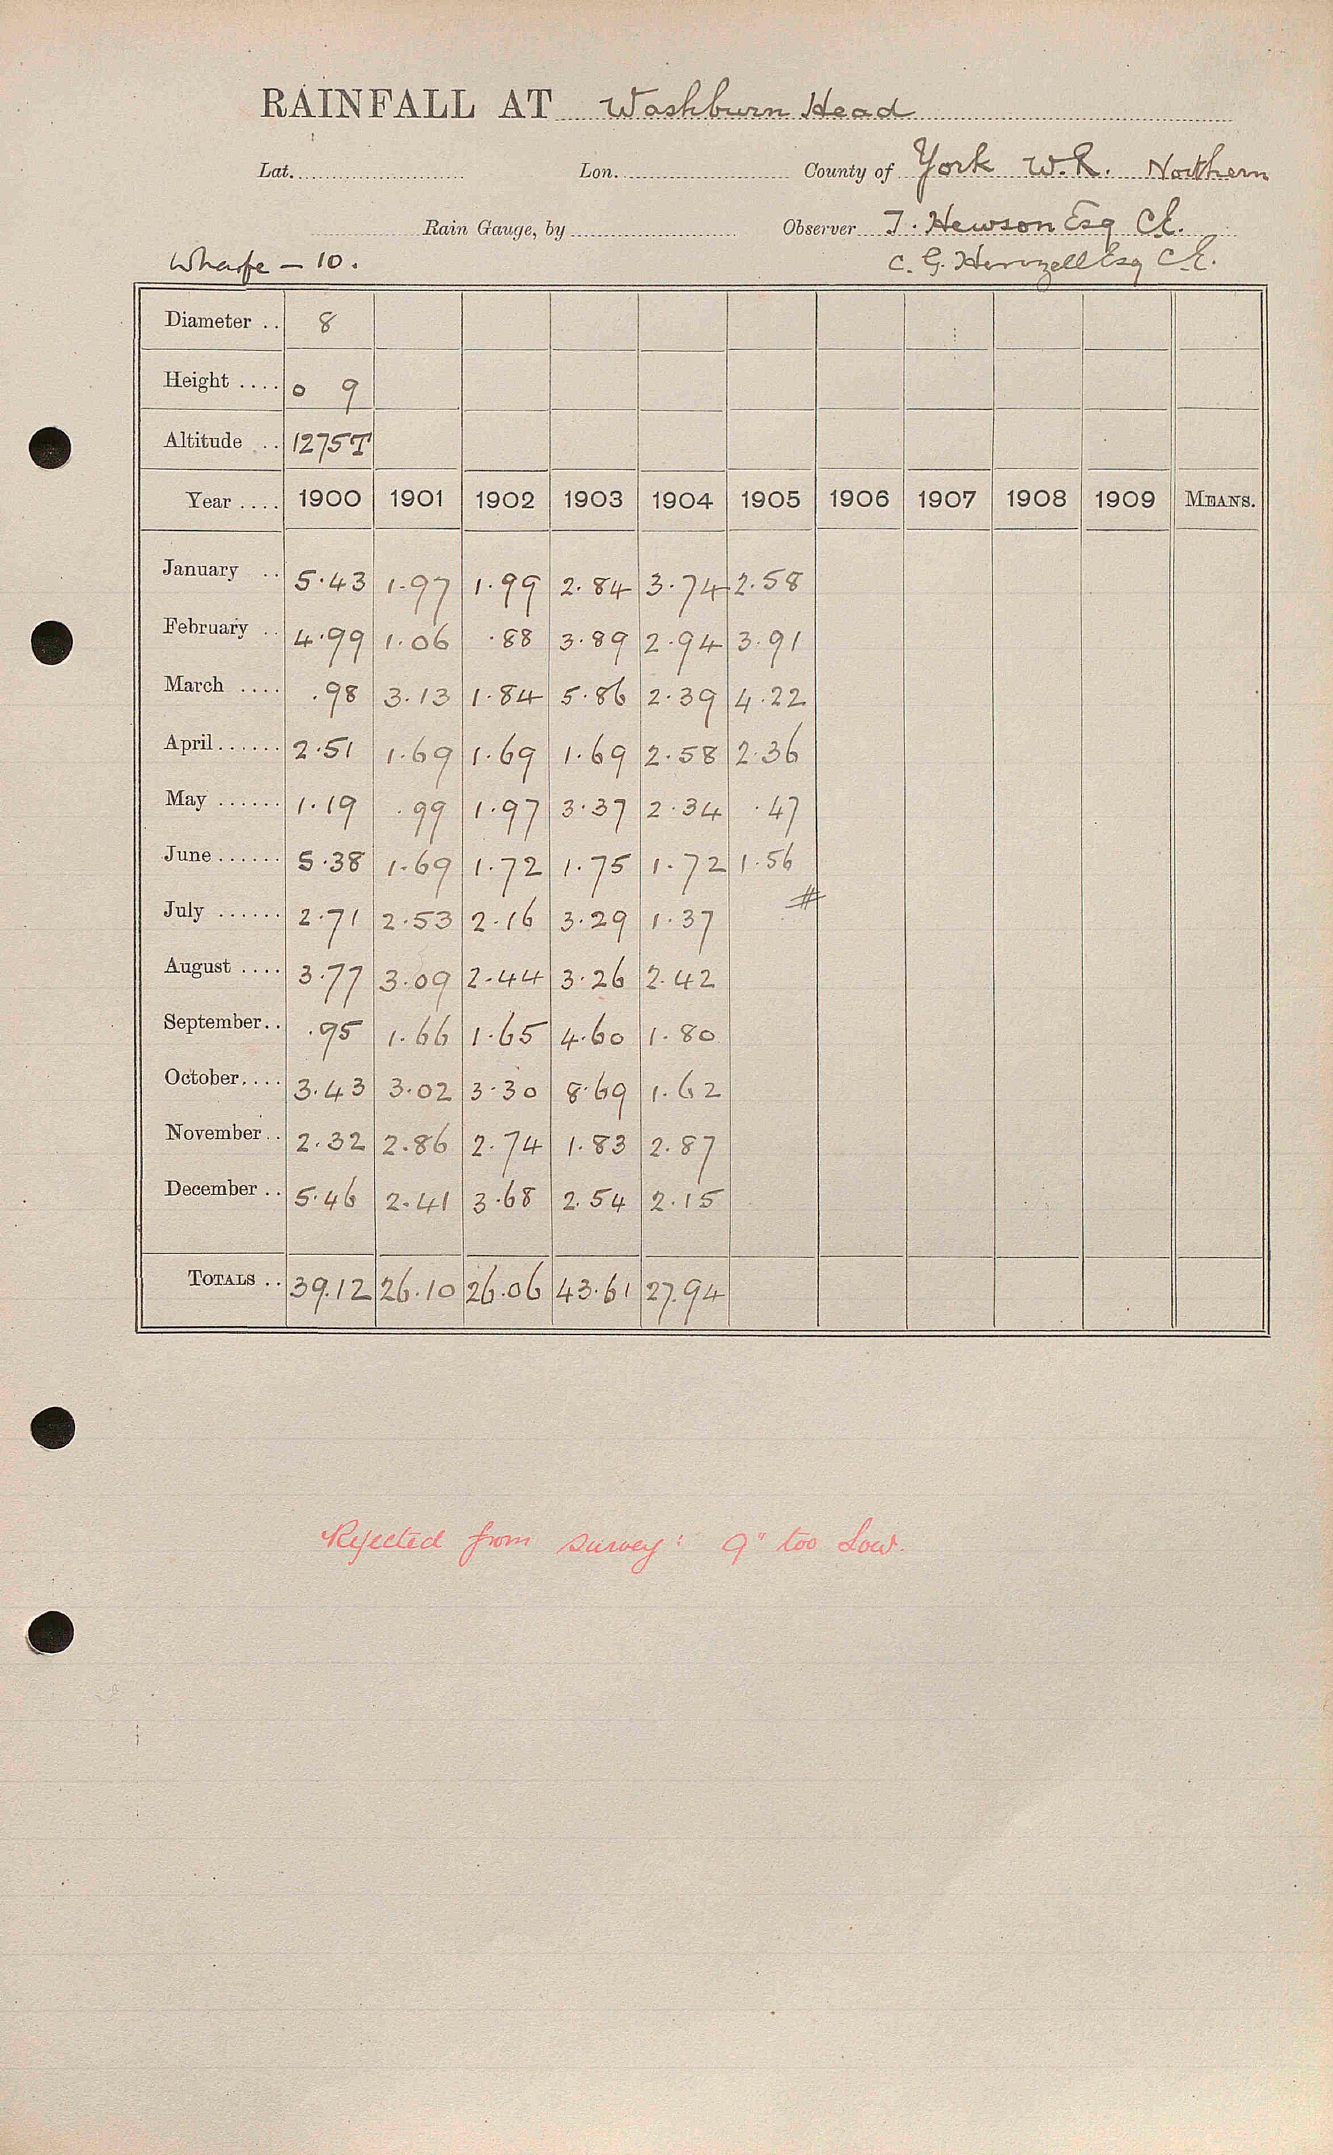 RAINFALL AT Washburn Head
Lat. Lon. County of York W.R. Northern
Rain Gauge, by Observer T. Hewson Esq C.E.
Wharfe - 10. C. G. Esq C.E.
Diameter .. 8
Height .... 0 9
Altitude .. 1275T
Year .... 1900 1901 1902 1903 1904 1905 1906 1907 1908 1909 MEANS.
January .. 5.43 1.97 1.99 2.84 3.74 2.58
February .. 4.99 1.06 .88 3.89 2.94 3.91
March .... .98 3.13 1.84 5.86 2.39 4.22
April...... 2.51 1.69 1.69 1.69 2.58 2.36
May ...... 1.19 .99 1.97 3.37 2.34 .47
June...... 5.38 1.69 1.72 1.75 1.72 1.56
July ...... 2.71 2.53 2.16 3.29 1.37 #
August .... 3.77 3.09 2.44 3.26 2.42
September.. .95 1.66 1.65 4.60 1.80
October.... 3.43 3.02 3.30 8.69 1.62
November.. 2.32 2.86 2.74 1.83 2.87
December .. 5.46 2.41 3.68 2.54 2.15
TOTALS .. 39.12 26.10 26.06 43.61 27.94
Rejected from survey: 9" too Low.